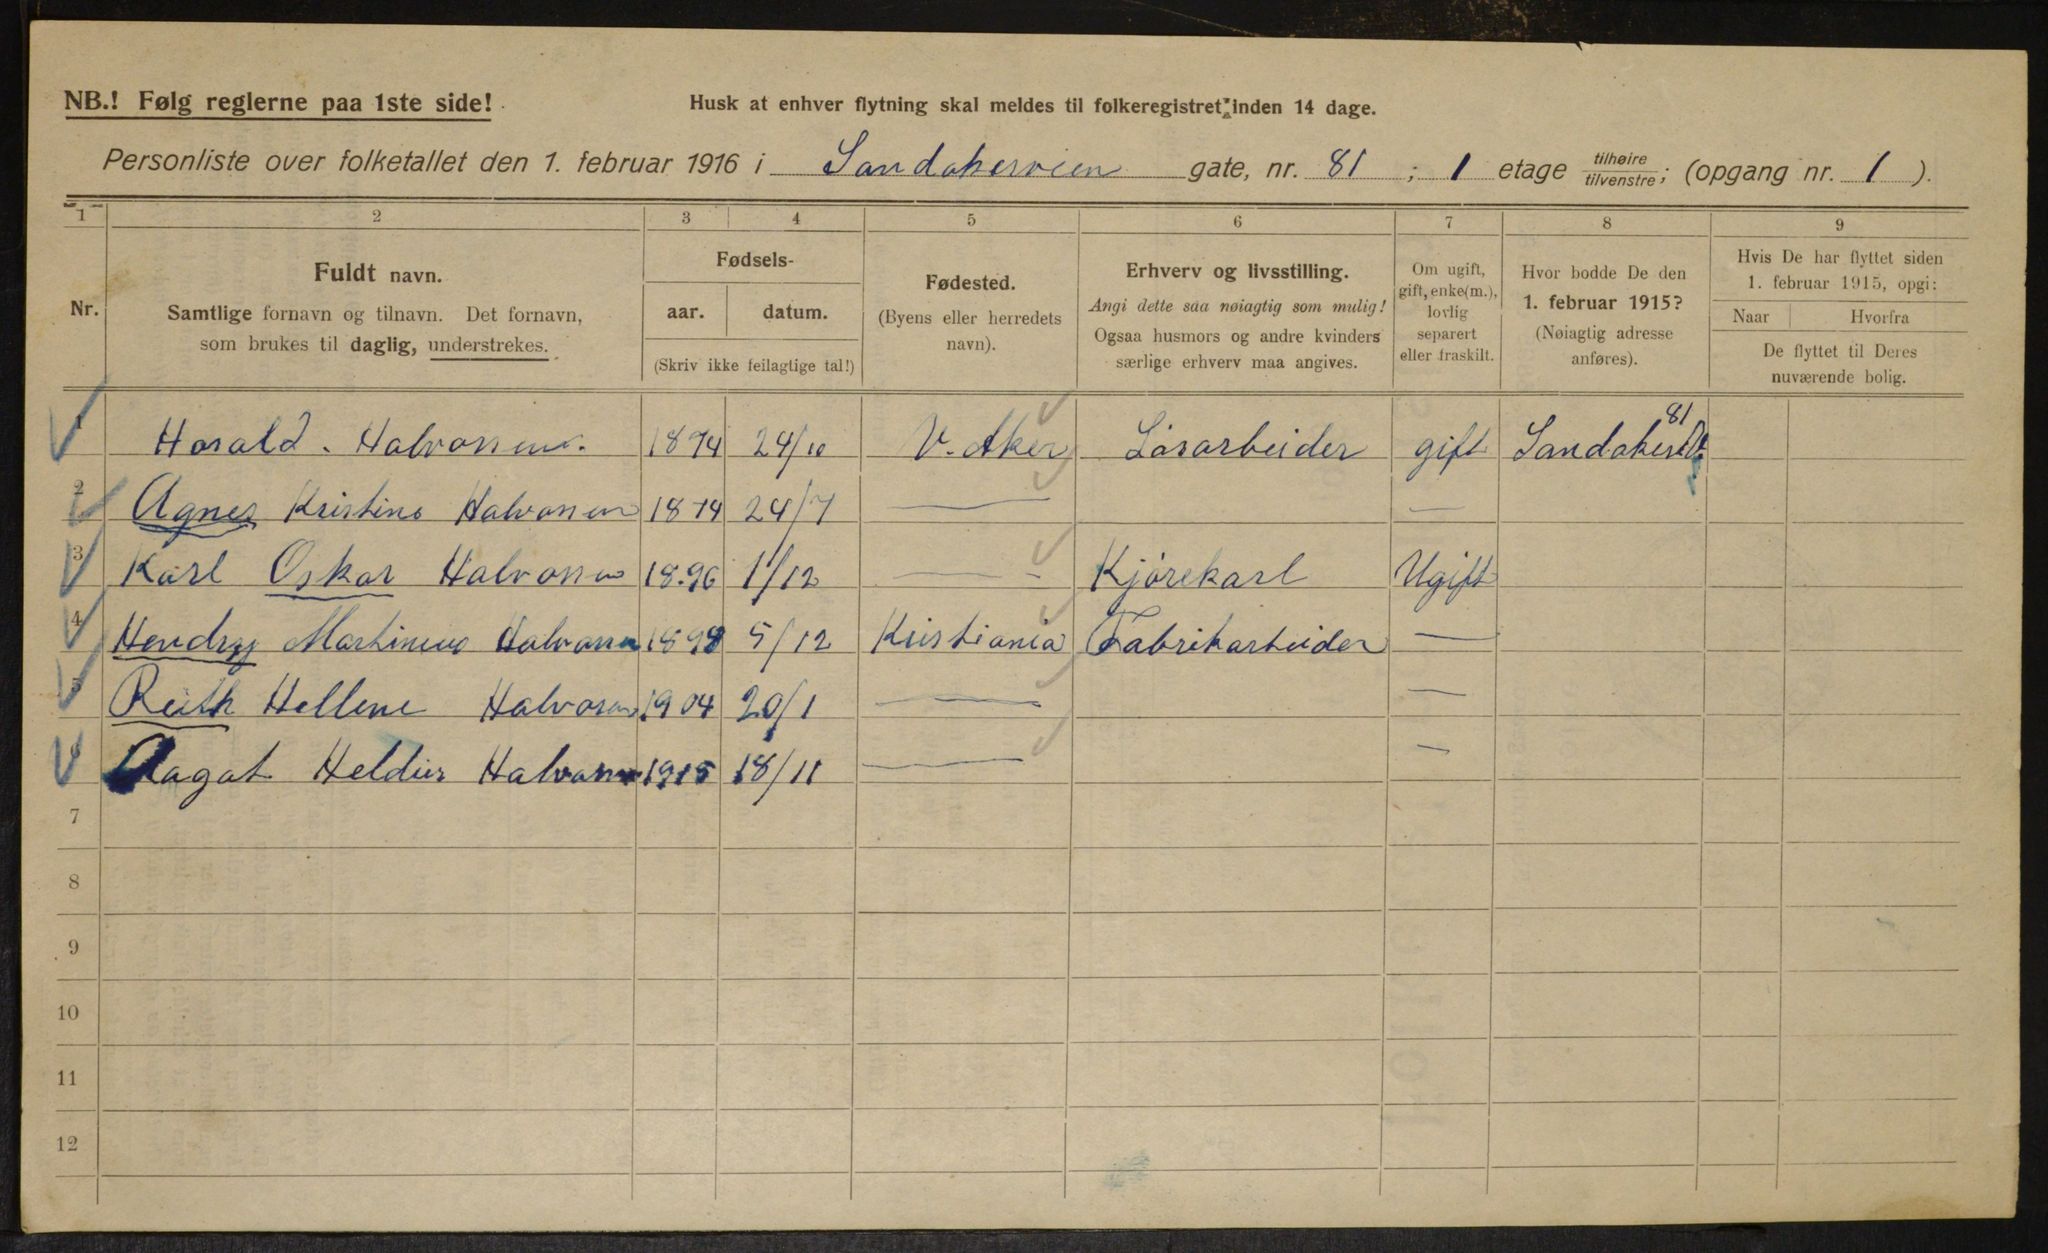 NB.! Følg reglerne paa 1ste side!
Husk at enhver flytning skal meldes til folkeregistret inden 14 dage.
Personliste over folketallet den 1. februar 1916 i Sandakervien gate, nr. 81 ; 1 etage tilhøire tilvenstre; (opgang nr. 1 ).
1 2 3 4 5 6 7 8 9
Nr.
Fuldt navn.
Samtlige fornavn og tilnavn. Det fornavn,
som brukes til daglig, understrekes.
Fødsels-
aar. datum.
(Skriv ikke feilagtige tal!)
Fødested.
(Byens eller herredets
navn).
Erhverv og livsstilling.
Angi dette saa nøiagtig som mulig!
Ogsaa husmors og andre kvinders
særlige erhverv maa angives.
Om ugift,
gift, enke(m.),
lovlig
separert
eller fraskilt.
Hvor bodde De den
1. februar 1915?
(Nøiagtig adresse
anføres).
Hvis De har flyttet siden
1. februar 1915, opgi:
Naar Hvorfra
De flyttet til Deres
nuværende bolig.
1 Harald. Halvorsen. 1874 24/10 V. Aker Løsarbeider gift 81
2 Agnes Kristine Halvorsen 1874 24/7 — —
3 Karl Oskar Halvorsen 1896 1/12 — Kjørekarl Ugift
4 Hendry Martinius Halvorsen 1898 5/12 Kristiania Fabrikarbeider —
5 Reith Hellene Halvorsen 1904 20/1 — —
6 Aagot Heldur Halvorsen 1915 18/11 — —
7
8
9
10
11
12